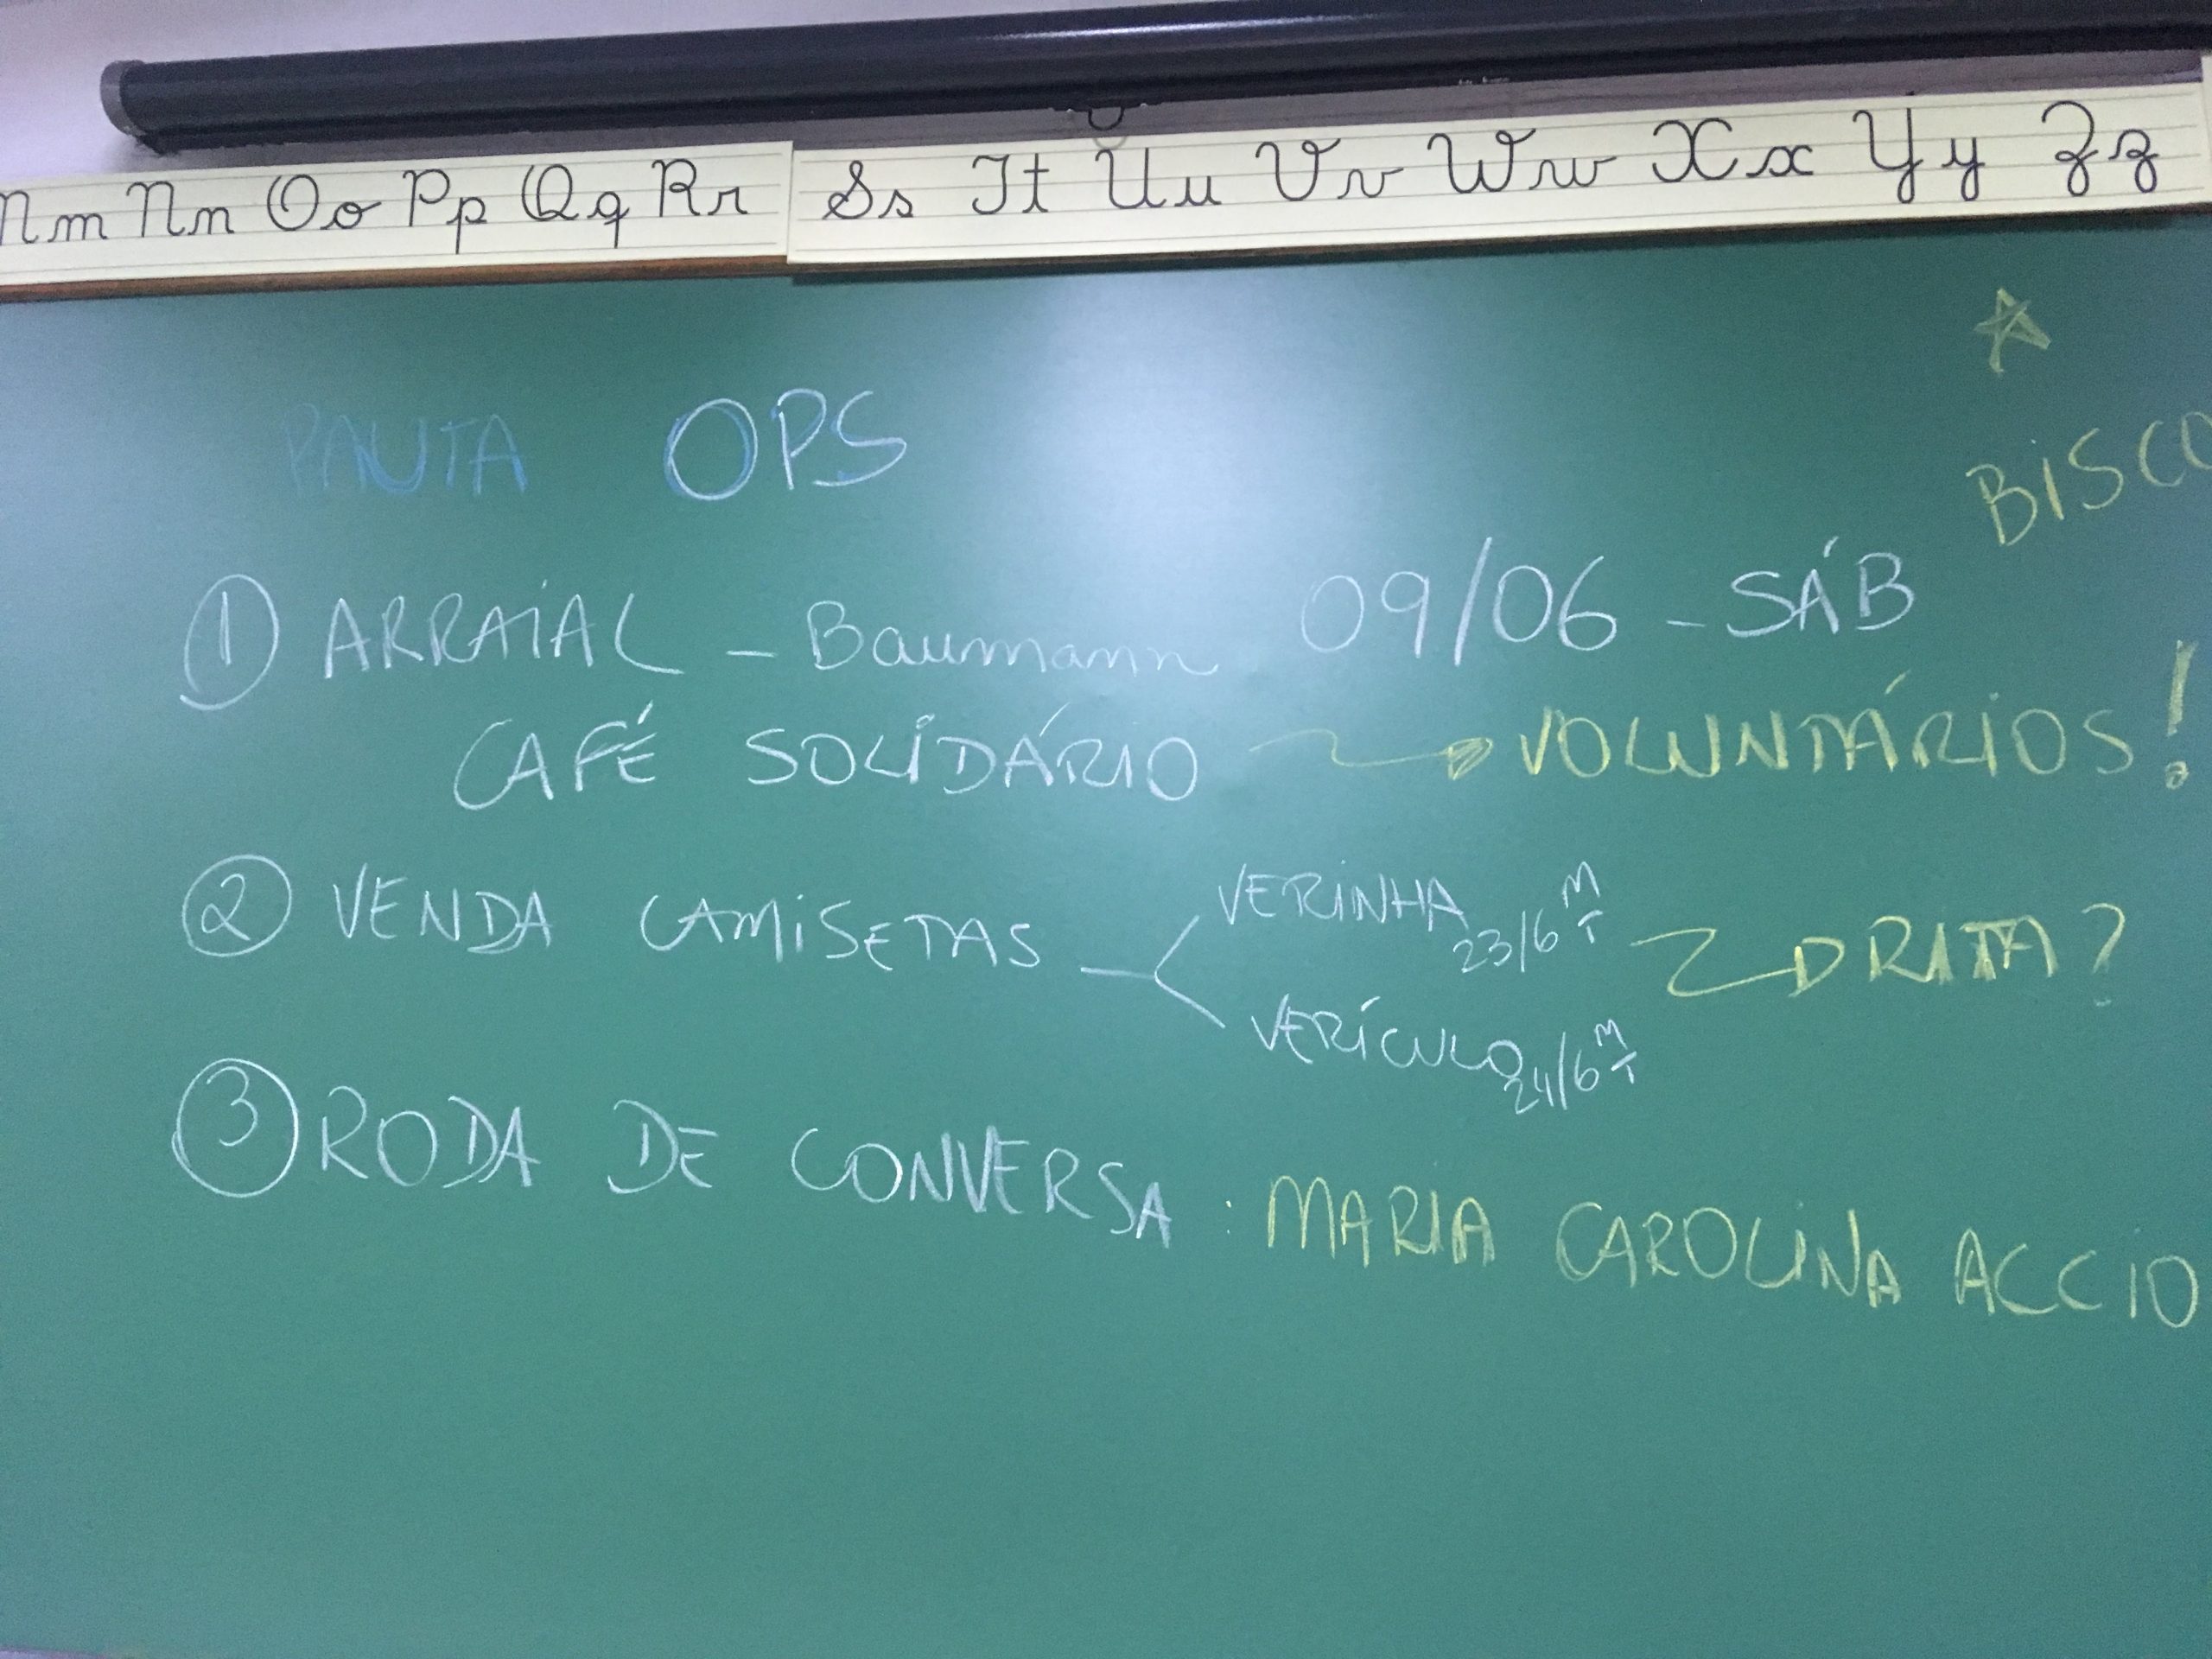 Mm Nn Oo Pp Qq Rr Ss Tt Uu Vv Ww Xx Yy Zz
PAUTA OPS
BISCO
① ARRAIAL - Baumann 09/06 - SÁB
CAFÉ SOLIDÁRIO → VOLUNTÁRIOS!
② VENDA CAMISETAS
VERINHA 23/6 M T
RITA?
VERÍCULO 24/6 M T
③ RODA DE CONVERSA : MARIA CAROLINA ACCIO